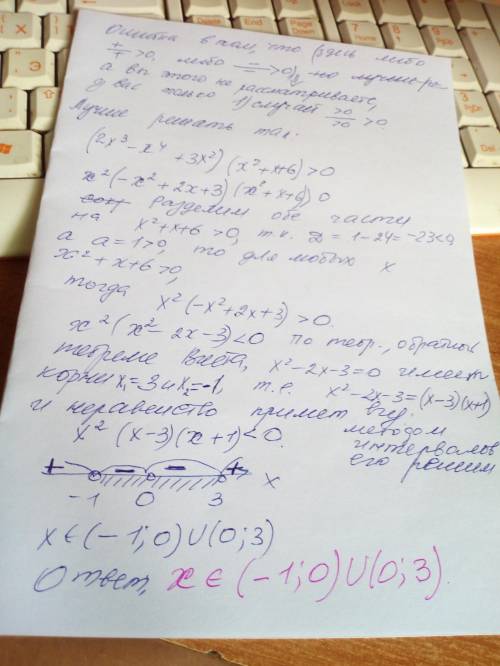 Ошибка в том, что здесь либо
+/+ >0, либо −/− >0, но
а вы этого не рассматриваете,
у вас только 1) случай >0/>0 >0.
Лучше решать так:
(2x³ - x⁴ + 3x²)(x² + x + 6) > 0
x²(-x² + 2x + 3)(x² + x + 6) 0
разделим обе части
на x² + x + 6 > 0, т.к. D = 1 - 24 = -23 < 0,
а a = 1 > 0, то для любых x
x² + x + 6 > 0,
тогда
x²(-x² + 2x + 3) > 0.
x²(x² - 2x - 3) < 0 По теор., обратной
теореме Виета, x² - 2x - 3 = 0 имеет
корни x₁ = 3 и x₂ = -1, т.е. x² - 2x - 3 = (x - 3)(x + 1)
и неравенство примет вид
x²(x - 3)(x + 1) < 0. методом
интервалов
его решим
+ − − +
-1 0 3 x
x ∈ (-1; 0) ∪ (0; 3)
Ответ, x ∈ (-1; 0) ∪ (0; 3).